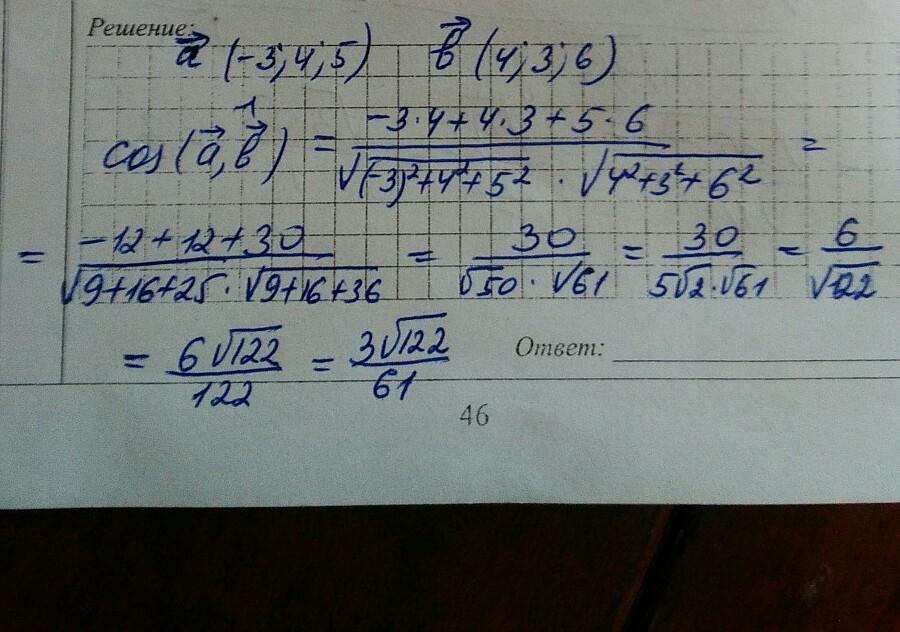 Решение:
a⃗ (-3; 4; 5) b⃗ (4; 3; 6)
cos(a⃗,^b⃗) = (-3·4+4·3+5·6)/(√((-3)²+4²+5²) · √(4²+3²+6²)) =
= (-12+12+30)/(√(9+16+25) · √(9+16+36)) = 30/(√50 · √61) = 30/(5√2·√61) = 6/√122
= 6√122/122 = 3√122/61 Ответ:
46